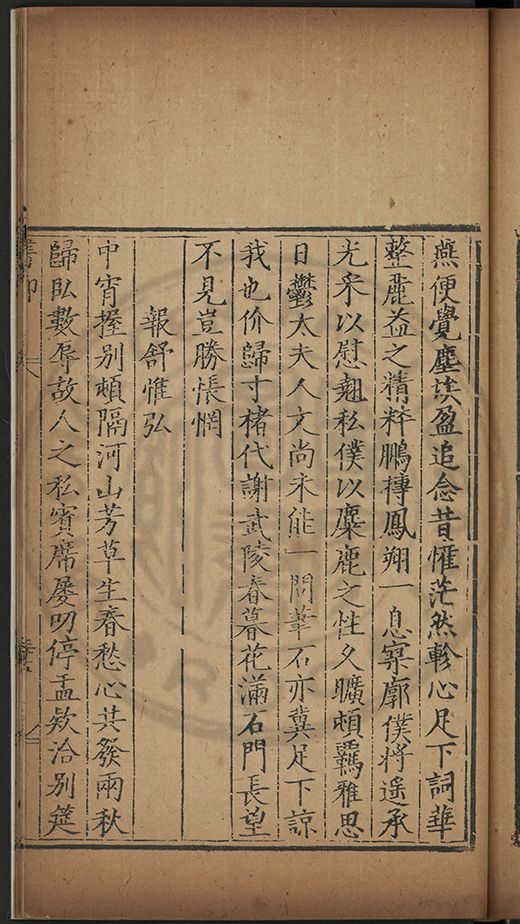 燕便覺塵埃盈追念昔懽茫然軫心足下詞華
整麗益之精粹鵬摶鳳翔一息寥廓僕將遥承
光采以慰翹私僕以麋鹿之性久曠頓羈雅思
日鬱太夫人文尚未能一問葦石亦冀足下諒
我也价歸寸楮代謝武陵春暮花滿石門長望
不見豈勝悵惘
報舒惟弘
中宵握别頓隔河山芳草生春愁心共發兩秋
歸臥數辱故人之私賓席屡叨停盂欵洽别筵